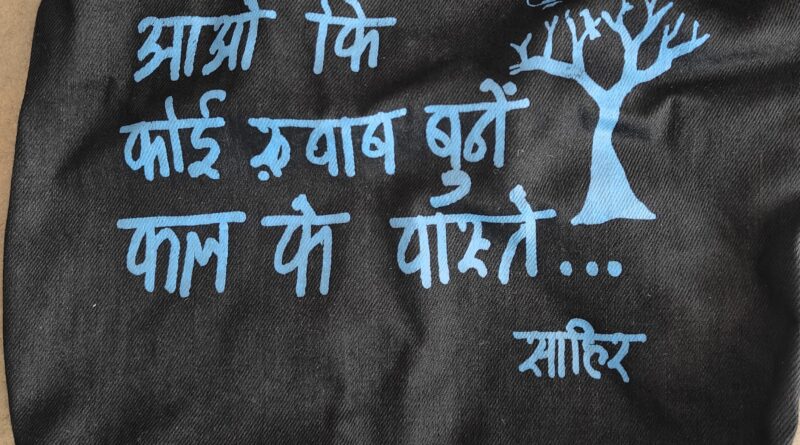 आओ कि
कोई ख़्वाब बुनें
कल के वास्ते...
साहिर